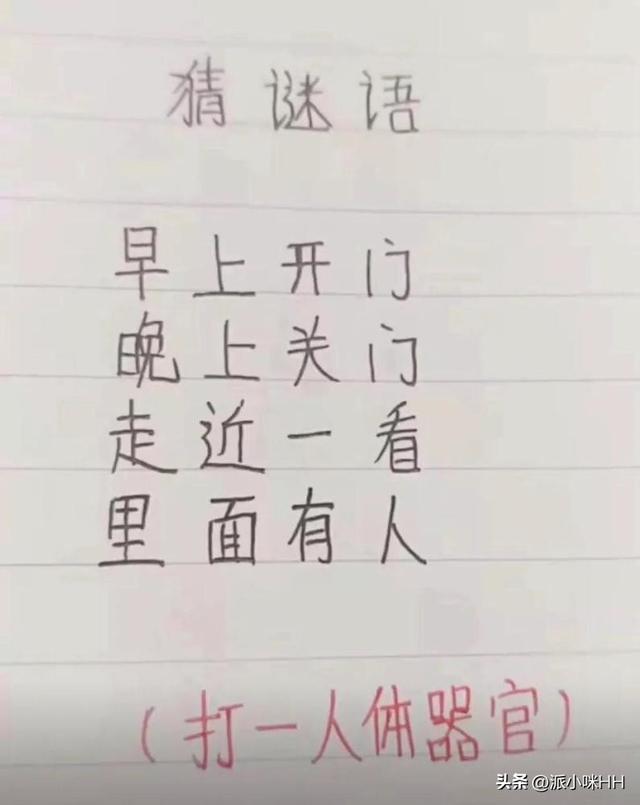 猜谜语
早上开门
晚上关门
走近一看
里面有人
(打一人体器官)
头条 @派小咪HH